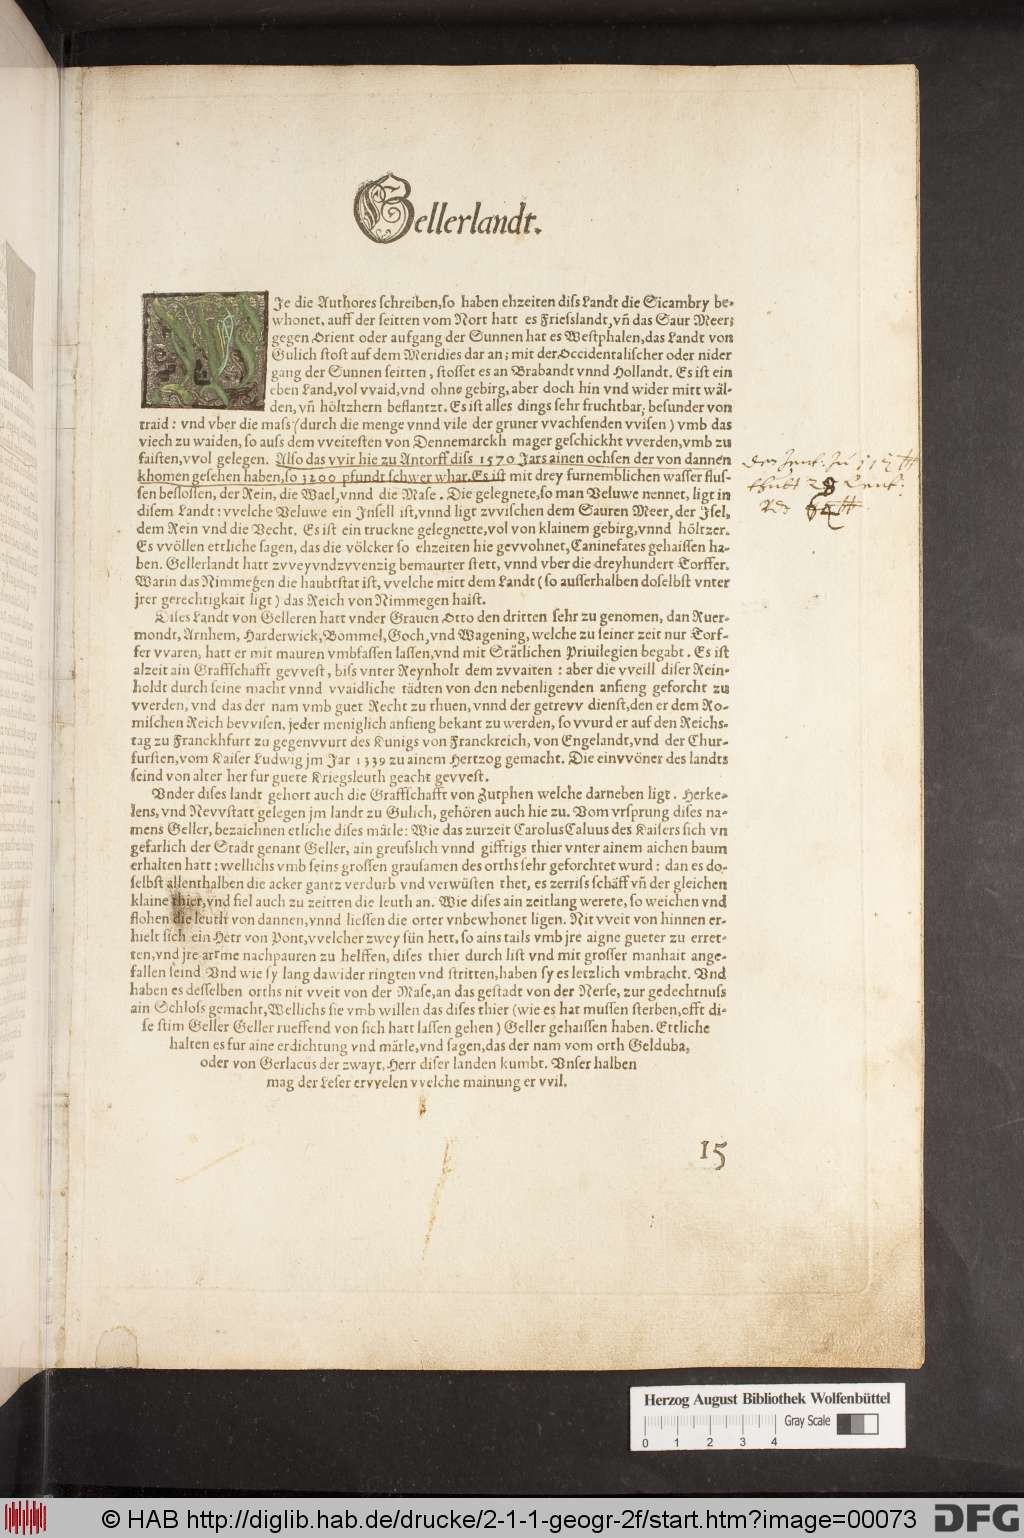 Gellerlandt.
WIe die Authores schreiben, so haben ehzeiten diss Landt die Sicambry be-
whonet, auff der seitten vom Nort hatt es Friesslandt, vñ das Saur Meer;
gegen Orient oder aufgang der Sunnen hat es Westphalen, das Landt von
Gulich stost auf dem Meridies dar an; mit der Occidentalischer oder nider
gang der Sunnen seitten, stosset es an Brabandt vnnd Hollandt. Es ist ein
eben Land, vol vvaid, vnd ohne gebirg, aber doch hin vnd wider mitt wäl-
den, vñ höltzhern beflantzt. Es ist alles dings sehr fruchtbar, besunder von
traid: vnd vber die mass (durch die menge vnnd vile der gruner vvachsenden vvisen) vmb das
viech zu waiden, so auss dem vveitesten von Dennemarckh mager geschickht vverden, vmb zu
faisten, vvol gelegen. Also das vvir hie zu Antorff diss 1570 Jars ainen ochsen der von dannen
khomen gesehen haben, so 3200 pfundt schwer whar. Es ist mit drey furnemblichen wasser flus-
sen beslossen, der Rein, die Wael, vnnd die Mase. Die gelegnete, so man Veluwe nennet, ligt in
disem Landt: vvelche Veluwe ein Insell ist, vnnd ligt zvvischen dem Sauren Meer, der Jsel,
dem Rein vnd die Vecht. Es ist ein truckne gelegnette, vol von klainem gebirg, vnnd höltzer.
Es vvöllen ettliche sagen, das die völcker so ehzeiten hie gevvohnet, Caninefates gehaissen ha-
ben. Gellerlandt hatt zvveyvndzvvenzig bemaurter stett, vnnd vber die dreyhundert Torffer.
Warin das Nimmegen die haubtstat ist, vvelche mitt dem Landt (so ausserhalben doselbst vnter
jrer gerechtigkait ligt) das Reich von Nimmegen haist.
Dises Landt von Gelleren hatt vnder Grauen Otto den dritten sehr zu genomen, dan Ruer-
mondt, Arnhem, Harderwick, Bommel, Goch, vnd Wagening, welche zu seiner zeit nur Torf-
fer vvaren, hatt er mit mauren vmbfassen lassen, vnd mit Stätlichen Priuilegien begabt. Es ist
alzeit ain Graffschafft gevvest, biss vnter Reynholt dem zvvaiten: aber die vveill diser Rein-
holdt durch seine macht vnnd vvaidliche tädten von den nebenligenden anfieng geforcht zu
vverden, vnd das der nam vmb guet Recht zu thuen, vnnd der getrevv dienst, den er dem Ro-
mischen Reich bevvisen, jeder meniglich anfieng bekant zu werden, so vvurd er auf den Reichs-
tag zu Franckhfurt zu gegenvvurt des Kunigs von Franckreich, von Engelandt, vnd der Chur-
fursten, vom Kaiser Ludwig jm Jar 1339 zu ainem Hertzog gemacht. Die einvvöner des landts
seind von alter her fur guete Kriegsleuth geacht gevvest.
Vnder dises landt gehort auch die Graffschafft von Zutphen welche darneben ligt. Herke-
lens, vnd Nevvstatt gelegen jm landt zu Gulich, gehören auch hie zu. Vom vrsprung dises na-
mens Geller, bezaichnen etliche dises märle: Wie das zurzeit Carolus Caluus des Kaisers sich vn
gefarlich der Stadt genant Geller, ain greusslich vnnd gifftigs thier vnter ainem aichen baum
erhalten hatt: wellichs vmb seins grossen grausamen des orths sehr geforchtet wurd: dan es do-
selbst allenthalben die acker gantz verdurb vnd verwüsten thet, es zerriss schäff vñ der gleichen
klaine thier, vnd fiel auch zu zeitten die leuth an. Wie dises ain zeitlang werete, so weichen vnd
flohen die leuth von dannen, vnnd liessen die orter vnbewhonet ligen. Nit vveit von hinnen er-
hielt sich ein Herr von Pont, vvelcher zwey sün hett, so ains tails vmb jre aigne gueter zu erret-
ten, vnd jre arme nachpauren zu helffen, dises thier durch list vnd mit grosser manhait ange-
fallen seind Vnd wie sy lang dawider ringten vnd stritten, haben sy es letzlich vmbracht. Vnd
haben es desselben orths nit vveit von der Mase, an das gestadt von der Nerse, zur gedechtnuss
ain Schloss gemacht, Wellichs sie vmb willen das dises thier (wie es hat mussen sterben, offt di-
se stim Geller Geller rueffend von sich hatt lassen gehen) Geller gehaissen haben. Ettliche
halten es fur aine erdichtung vnd märle, vnd sagen, das der nam vom orth Gelduba,
oder von Gerlacus der zwayt, Herr diser landen kumbt. Vnser halben
mag der Leser ervvelen vvelche mainung er vvil.
15
Herzog August Bibliothek Wolfenbüttel
Gray Scale
0 1 2 3 4
© HAB http://diglib.hab.de/drucke/2-1-1-geogr-2f/start.htm?image=00073
DFG